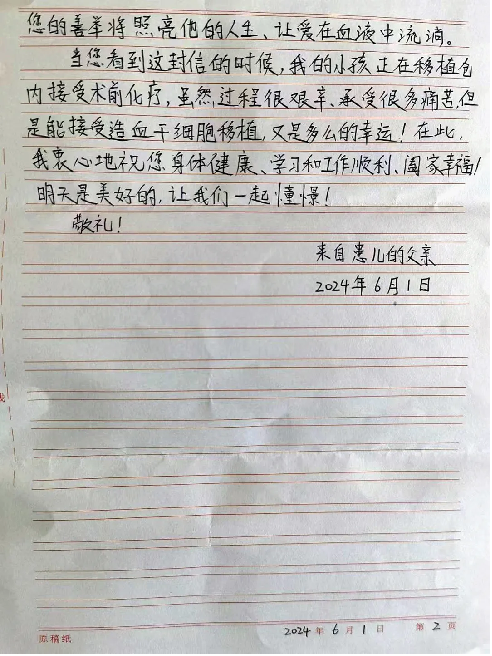 您的善举将照亮他的人生、让爱在血液中流淌。
当您看到这封信的时候，我的小孩正在移植仓
内接受术前化疗，虽然过程很艰辛、承受很多痛苦，但
是能接受造血干细胞移植，又是多么的幸运！在此，
我衷心地祝您身体健康、学习和工作顺利、阖家幸福！
明天是美好的，让我们一起憧憬！
敬礼！
来自患儿的父亲
2024年6月1日
原稿纸
2024年6月1日 第2页